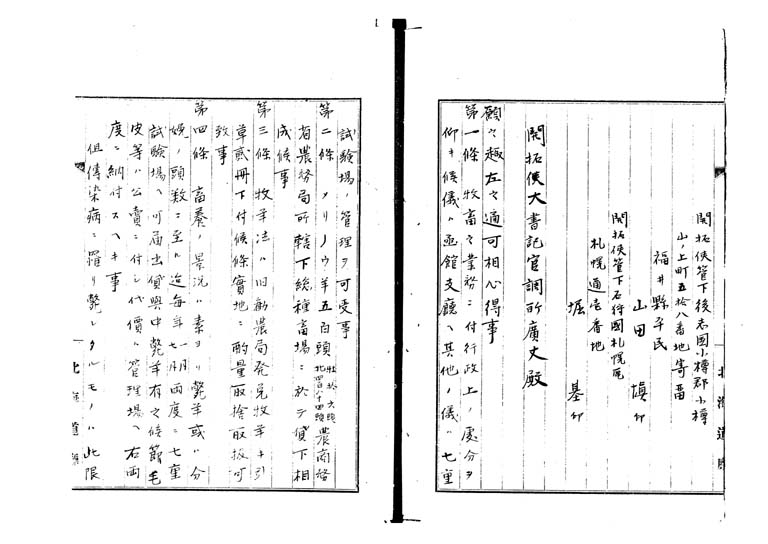 開拓使管下後志國小樽郡小樽
山ノ上町五拾八番地寄留
福井縣平民
山田慎印
開拓使管下石狩國札幌區
札幌通壱番地
堀基印
開拓使大書記官調所廣丈殿
願之趣左之通可相心得事
第一條 牧畜之業務ニ付行政上ノ處分ヲ
仰キ候儀ハ函館支廳ヘ其他ノ儀ハ七重
試驗場ノ管理ヲ可受事
第二條 メリノウ羊五百頭 牡拾六頭 牝四百八十四頭 農商務
省農務局所轄下総種畜場ニ於テ貸下相
成候事
第三條 牧羊法ハ旧勧農局発兌牧羊手引
草貳冊下付候條實地ニ酌量取捨取扱可
致事
第四條 畜養ノ景況ハ素ヨリ斃羊或ハ分
娩ノ頭数ニ至ル迠毎年七月両度ニ七重
試驗場ヘ可届出貸與中斃羊有之候節毛
皮等ハ公賣ニ付シ代價ハ管理場ヘ右両
度ニ納付スヘキ事
但傳染病ニ罹リ斃レタルモノハ此限
北海道廳
北海道廳